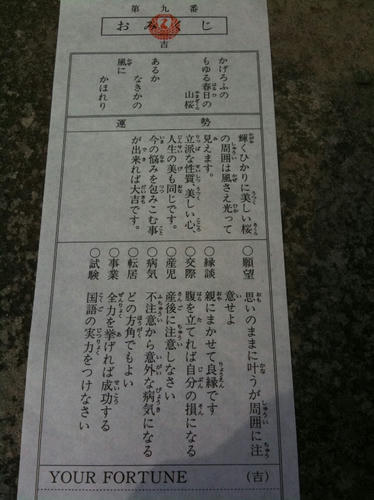 第九番
おみくじ
吉
かげろふの
もゆる春日の
山桜
あるか
なきかの
風に
かほれり
運勢
輝くひかりに美しい桜
の周囲は風さえ光って
見えます。
立派な性質、美しい心、
人生の美も同じです。
今の悩みを包みこむ事
が出来れば大吉です。
○願望 思いのままに叶うが周囲に注
意せよ
○縁談 親にまかせて良縁です
○交際 腹を立てれば自分の損になる
○産児 産後に注意しなさい
○病気 不注意から意外な病気になる
○転居 どの方角でもよい
○事業 全力を挙げれば成功する
○試験 国語の実力をつけなさい
YOUR FORTUNE (吉)